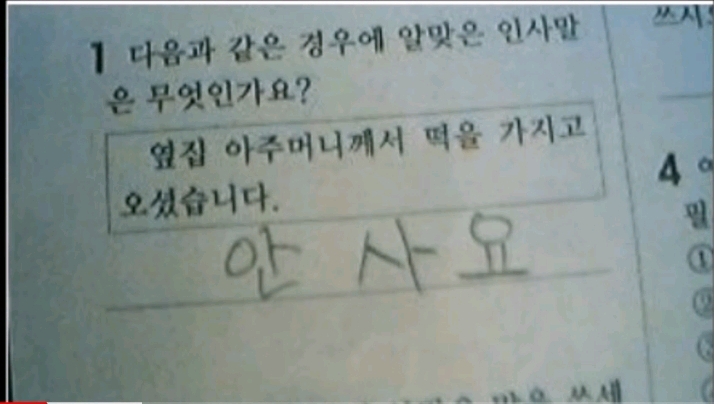 1 다음과 같은 경우에 알맞은 인사말
은 무엇인가요?
옆집 아주머니께서 떡을 가지고
오셨습니다.
안 사요
쓰시오
4
①
②